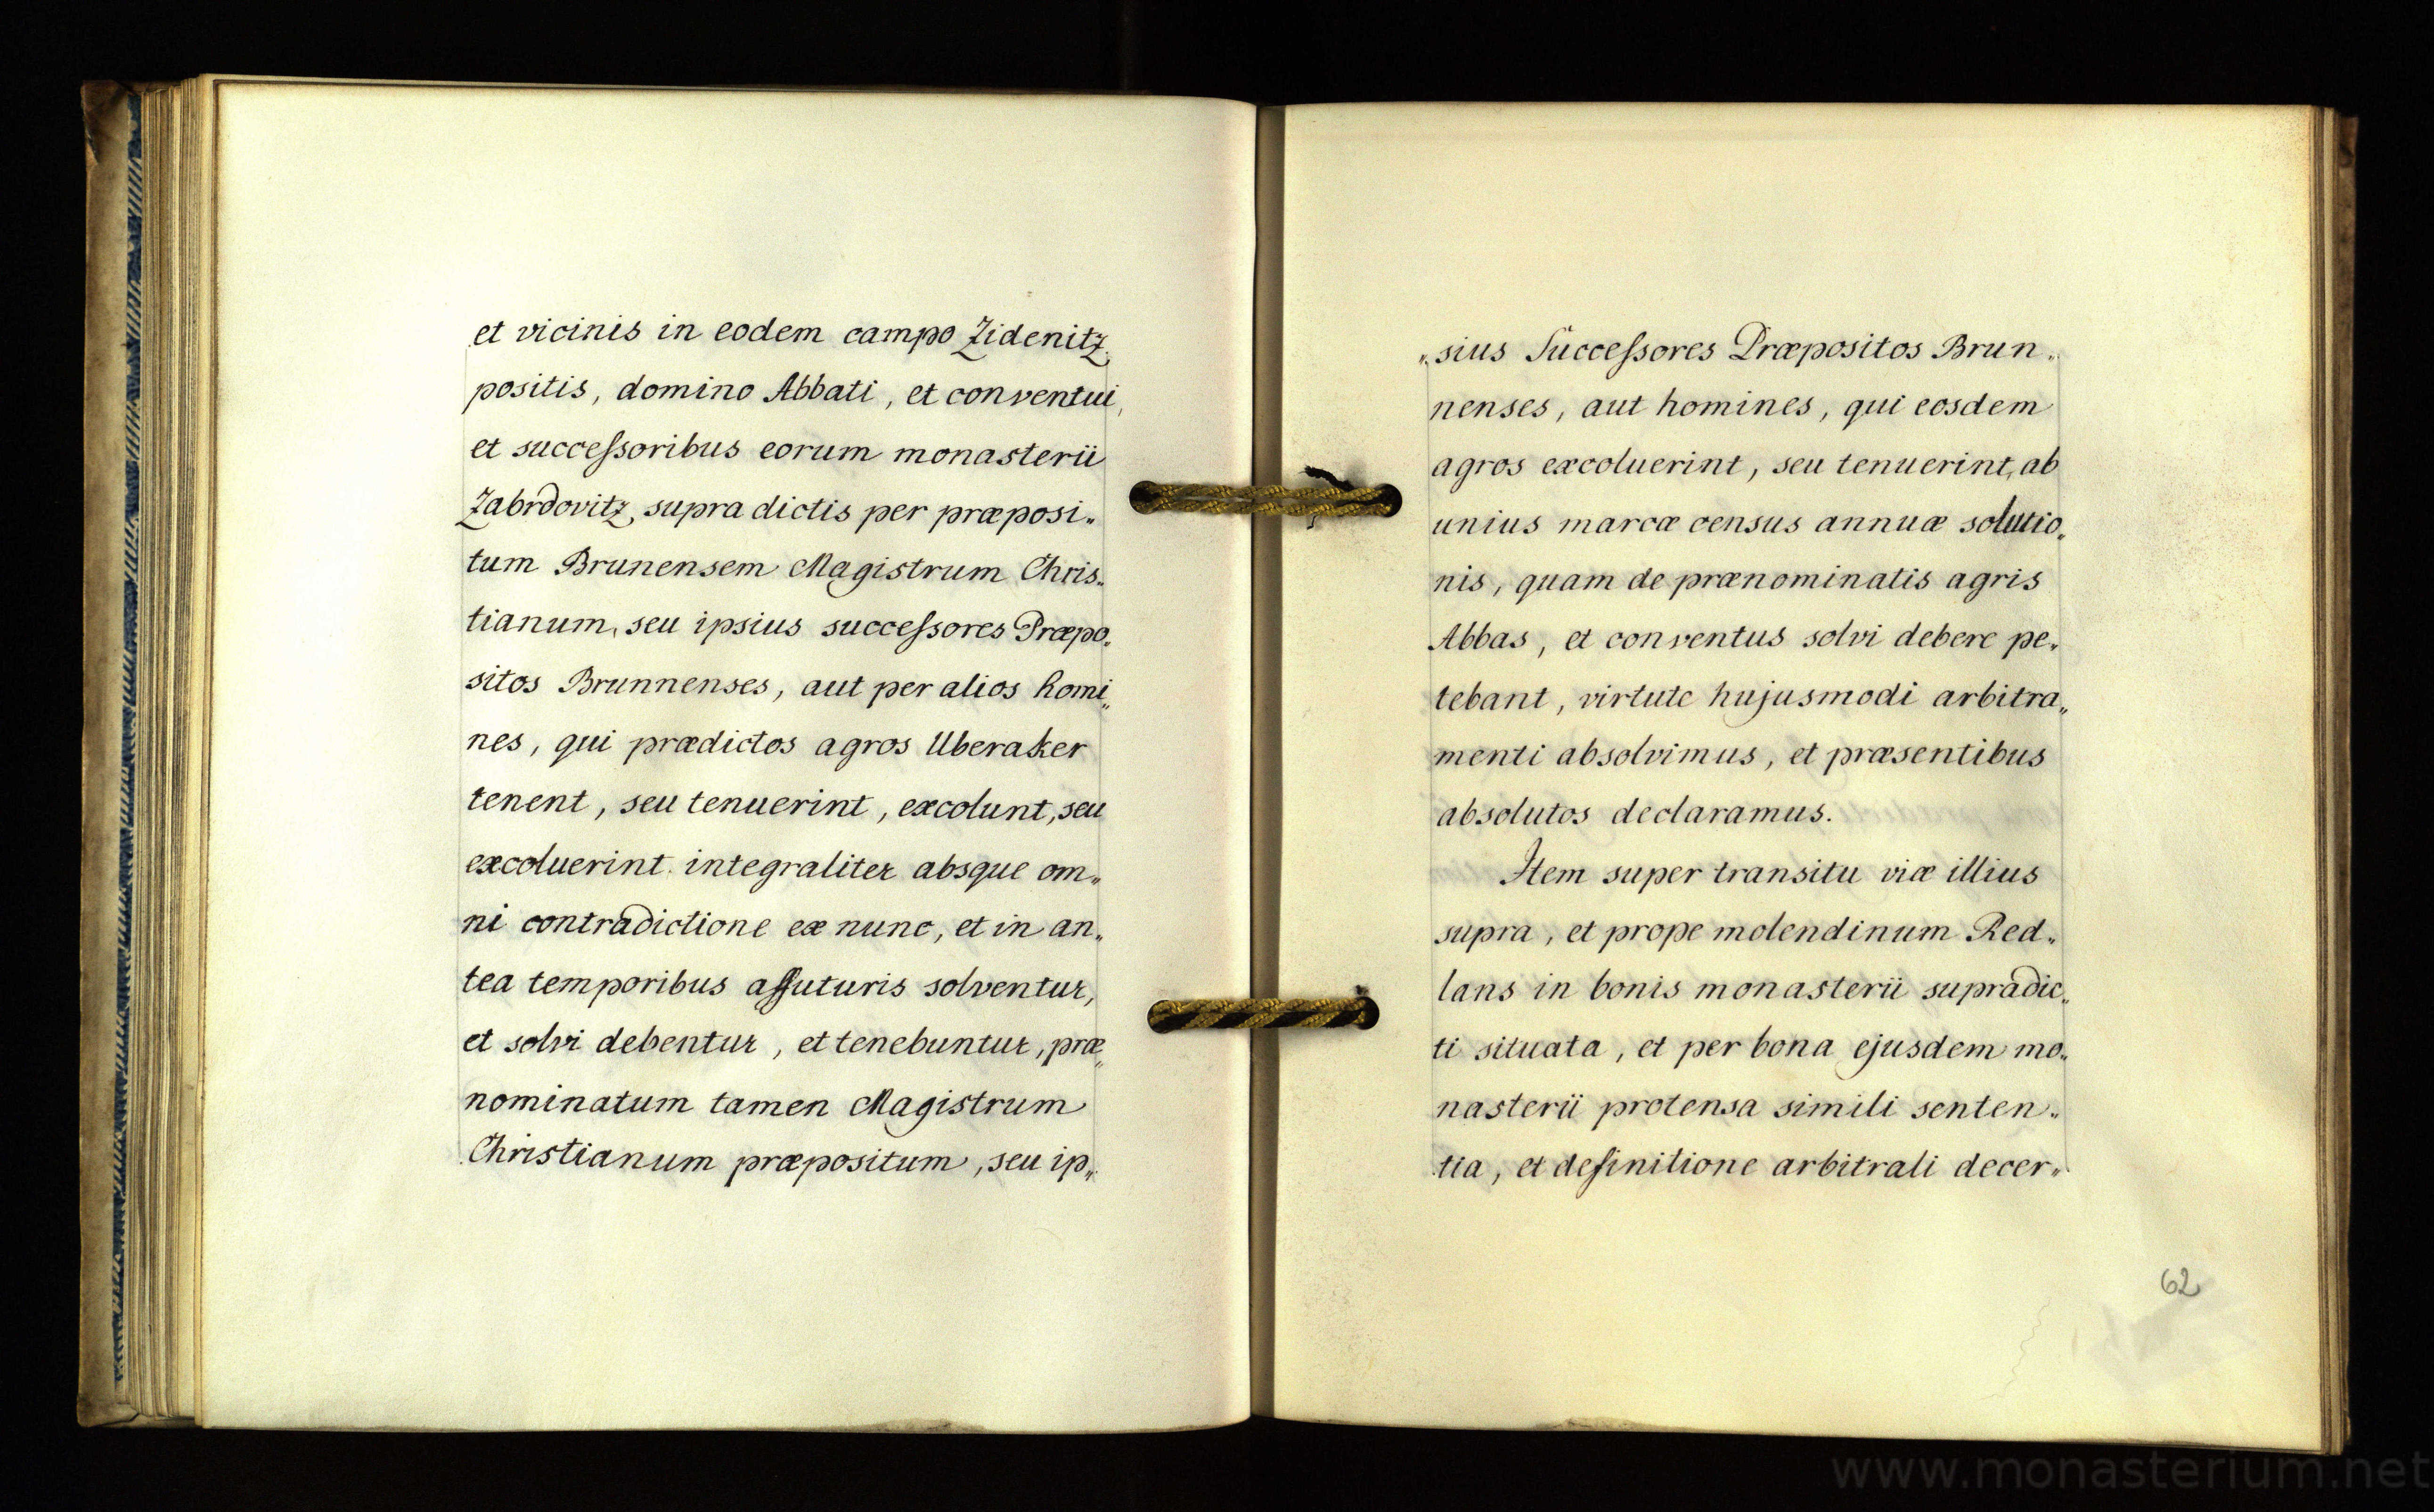 et vicinis in eodem campo Zidenitz
positis, domino Abbati, et conventui,
et succeſsoribus eorum monasterii
Zabrdovitz, supra dictis per præposi„
tum Brunensem Magistrum Chris„
tianum, seu ipsius succeſsores Præpo„
sitos Brunnenses, aut per alios homi„
nes, qui prædictos agros Uberaker
tenent, seu tenuerint, excolunt, seu
excoluerint integraliter absque om„
ni contradictione ex nunc, et in an„
tea temporibus affuturis solventur,
et solvi debentur, et tenebuntur, præ„
nominatum tamen Magistrum
Christianum præpositum, seu ip„
„sius Succeſsores Præpositos Brun„
nenses, aut homines, qui eosdem
agros excoluerint, seu tenuerint, ab
unius marcæ census annuæ solutio„
nis, quam de prænominatis agris
Abbas, et conventus solvi debere pe„
tebant, virtute hujusmodi arbitra„
menti absolvimus, et præsentibus
absolutos declaramus.
Item super transitu viæ illius
supra, et prope molendinum Red„
lans in bonis monasterii supradic„
ti situata, et per bona ejusdem mo„
nasterii protensa simili senten„
tia, et definitione arbitrali decer„
62
www.monasterium.net